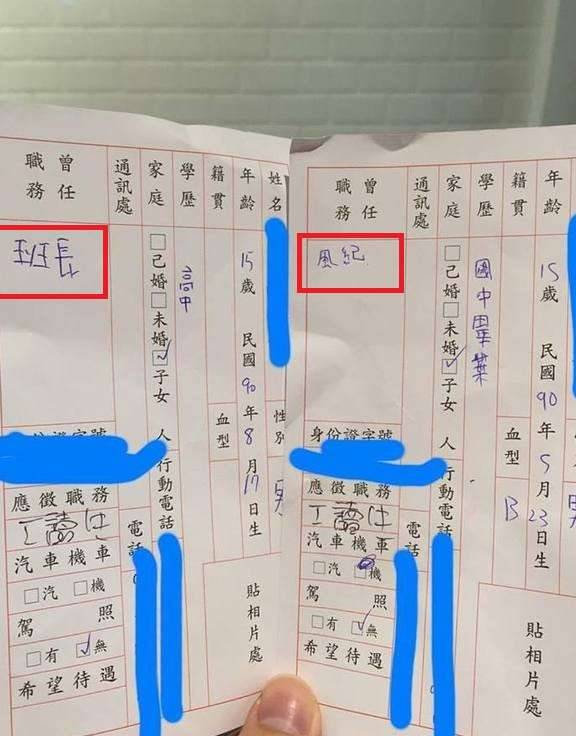 姓名
性別
男
年齡 15歲 民國90年8月17日生
籍貫
血型
學歷 高中
家庭 □己婚□未婚☑子女 人
通訊處
行動電話
電話
曾任職務
班長
份證字號
應徵職務
工讀生
汽車機車
□汽□機
駕照
□有☑無
希望待遇
貼相片處
年齡 15歲 民國90年5月23日生
籍貫
血型 B
學歷 國中畢業
家庭 □己婚□未婚☑子女 人
通訊處
行動電話
電話
曾任職務
風紀
身份證字號
應徵職務
工讀生
汽車機車
□汽□機
駕照
□有☑無
希望待遇
貼相片處